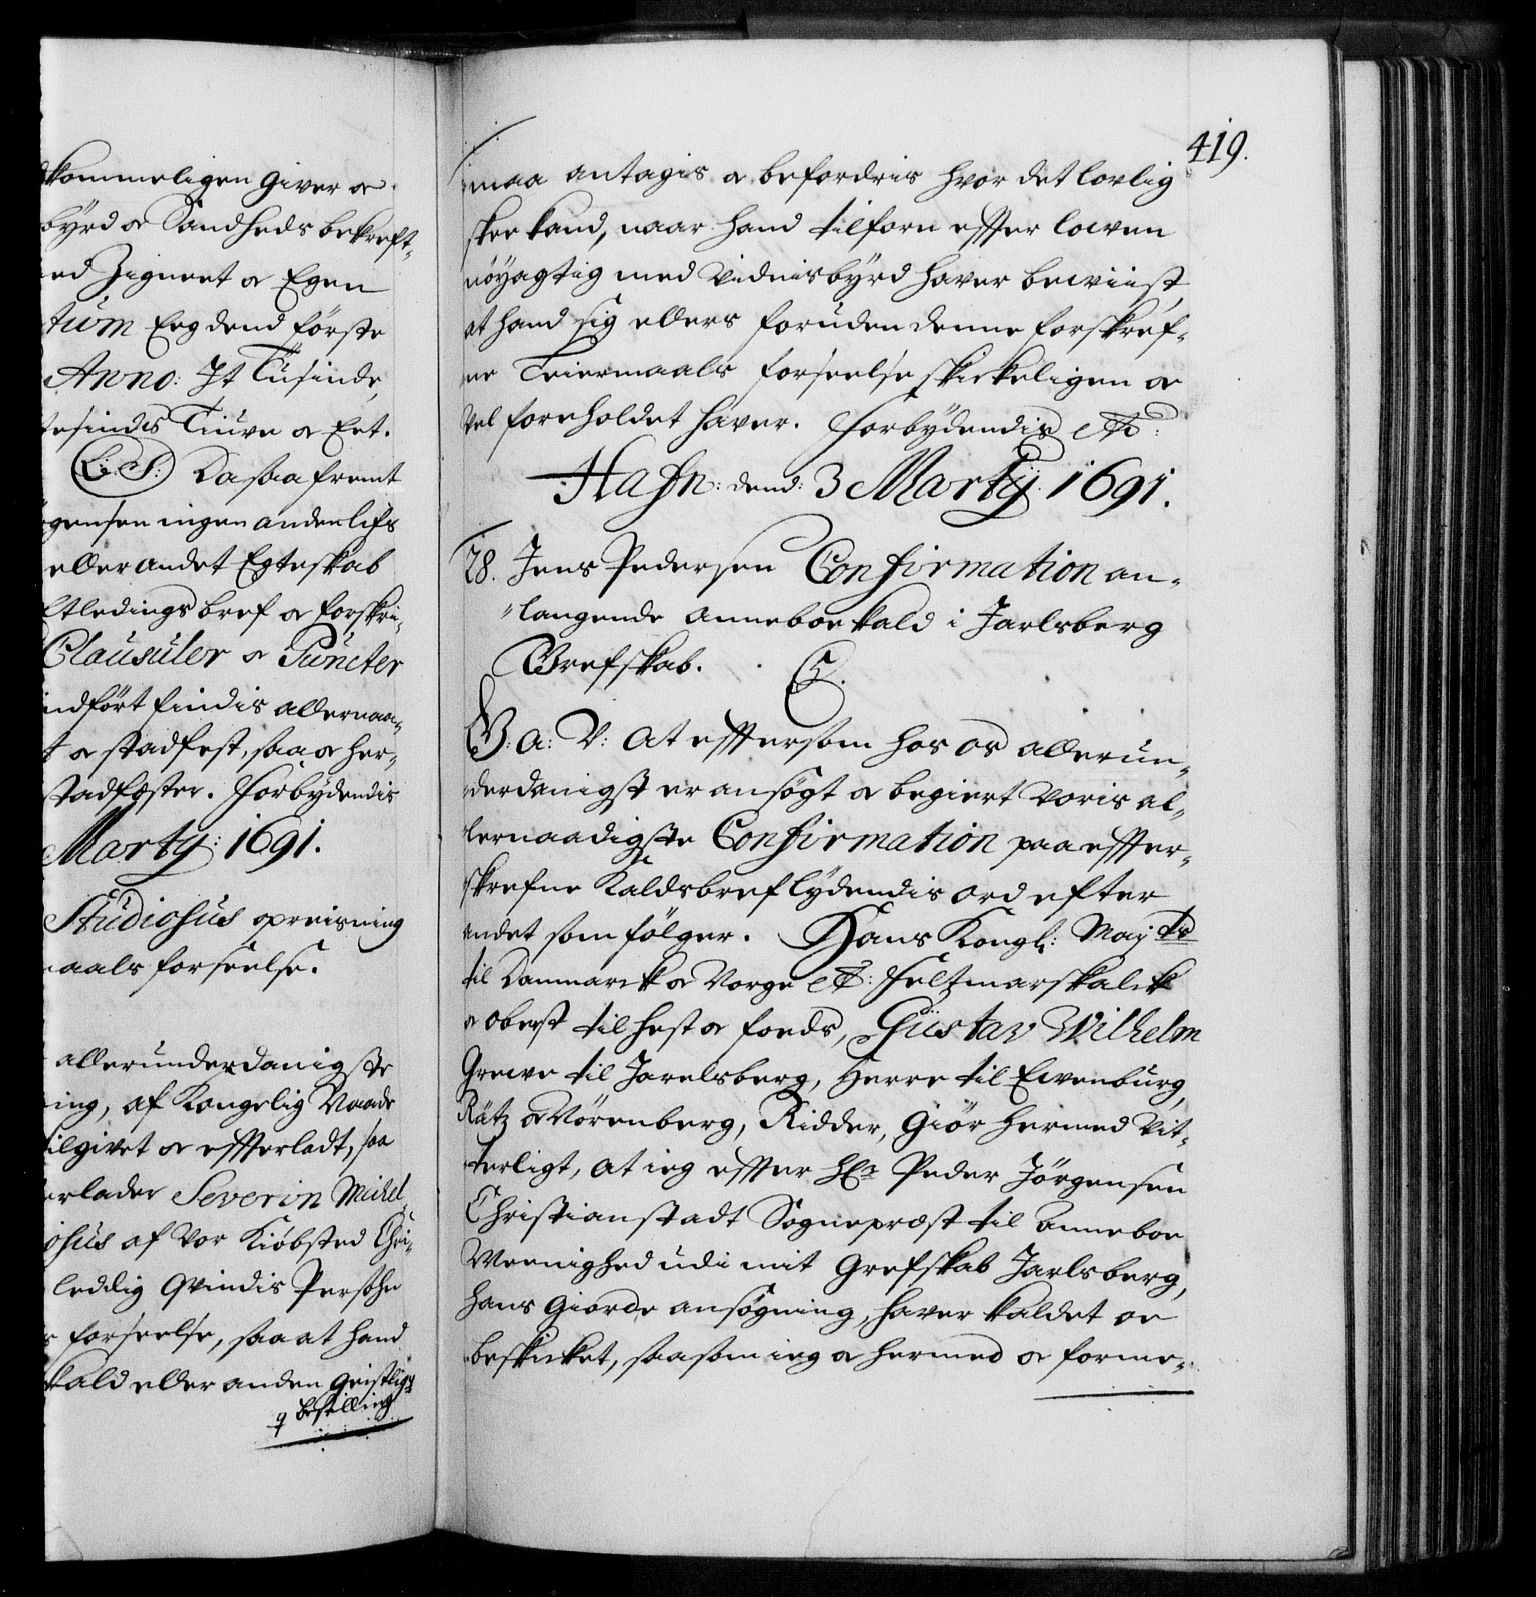 kommeligen Giver oc
byrd oc Sandheds bekreft,,
ed Zignert oc Egen
tum Eeg dend förste
Anno: It Tusinde,
tesindis Tiuve oc Eet.
L: S: Da saafremt
gensen ingen anden lifs
eller andet Egteskab
ltledings bref oc forskri,,
Clausuler oc Puncter
indfört findis allernaa,,
t oc stadfest, saa oc her,,
stadfester. Forbydendis
Martij: 1691.
Studiosus opreisning
maals forseelse.
allerunderdanigste
ing, af Kongelig Naade
tilgivet oc effterladt, saa
erlader Severin Michel
osus af vor Kiöbsted Chri,,
leddig Qvindis Persohn
s forseelse, saa at hand
kald eller anden Geistlig
bestilling
419.
maa antagis oc befordris hvor det lovlig
skee kand, naar hand tilforn effter lowen
nöyagtig med Vidnisbyrd haver bewiist,
at hand sig ellers foruden denne forskref,,
ne Leiermaals forseelse skickeligen oc
vel foreholdet haver. Forbydendis etc:
Hafn: dend: 3 Martij: 1691.
28. Jens Pedersen Confirmation an,,
langende Anneboe kald i Jarlsberg
Grefskab.
G: A: V: At efftersom hos os allerun,,
derdanigst er ansögt oc begiert voris al,,
lernaadigste Confirmation paa effter,,
skrefne Kaldsbref lydendis ord efter
andet som fölger. Hans Kongl: Maj ts
til Danmarck oc Norge etc: Feltmarskalck
oc oberst til hest oc foeds, Gustav Wilhelm
Grewe til Jarelsberg, Herre til Ewenburg,
Rätz oc Nörenberg, Ridder, Giör hermed vit,,
terligt, at ieg effter Hr Peder Jörgensen
Christianstadt Sognepræst til Anneboe
Meenighed udi mit Grefskab Jarlsberg,
hans giorde ansögning, haver kaldet oc
beskicket, saasom ieg oc hermed oc forme,,